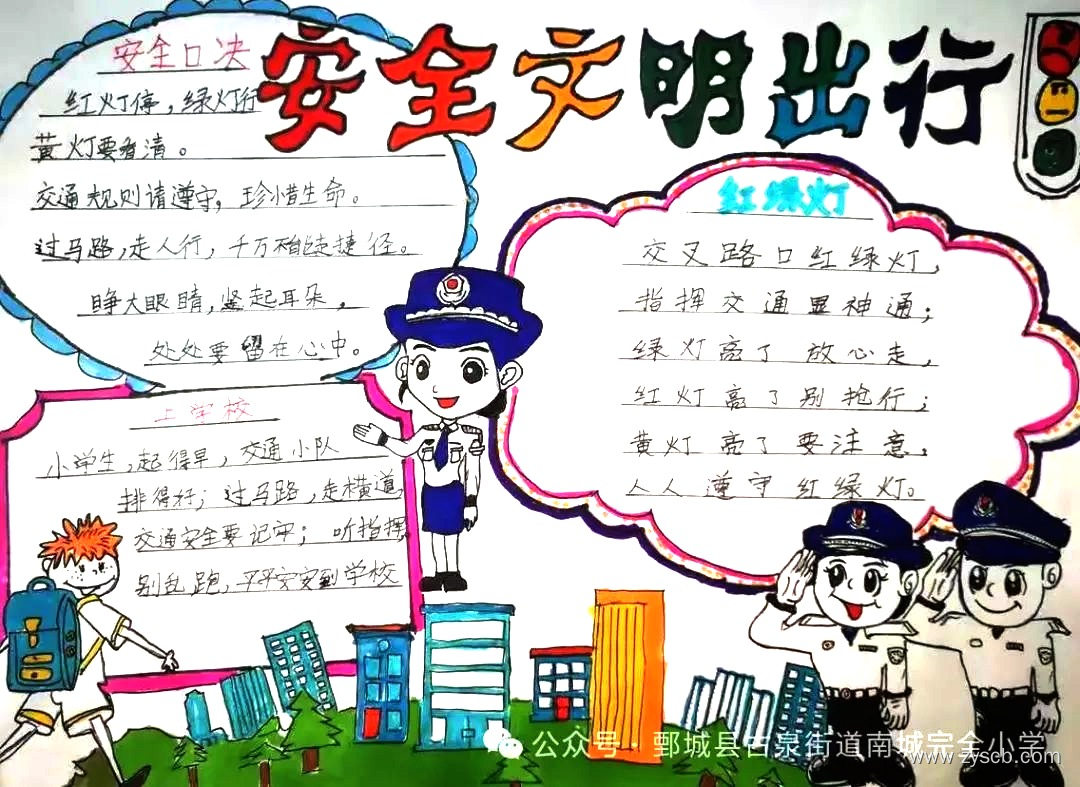 安全文明出行
安全口决
红灯停，绿灯行
黄灯要看清。
交通规则请遵守，珍惜生命。
过马路，走人行，千万不能走捷径。
睁大眼睛，竖起耳朵，
处处要留在心中。
红绿灯
交叉路口红绿灯，
指挥交通显神通；
绿灯亮了放心走，
红灯亮了别抢行；
黄灯亮了要注意，
人人遵守红绿灯。
上学校
小学生，起得早，交通小队
排得好；过马路，走横道，
交通安全要记牢；听指挥，
别乱跑，平平安安到学校
公众号·鄄城县古泉街道南城完全小学
www.zyscb.com